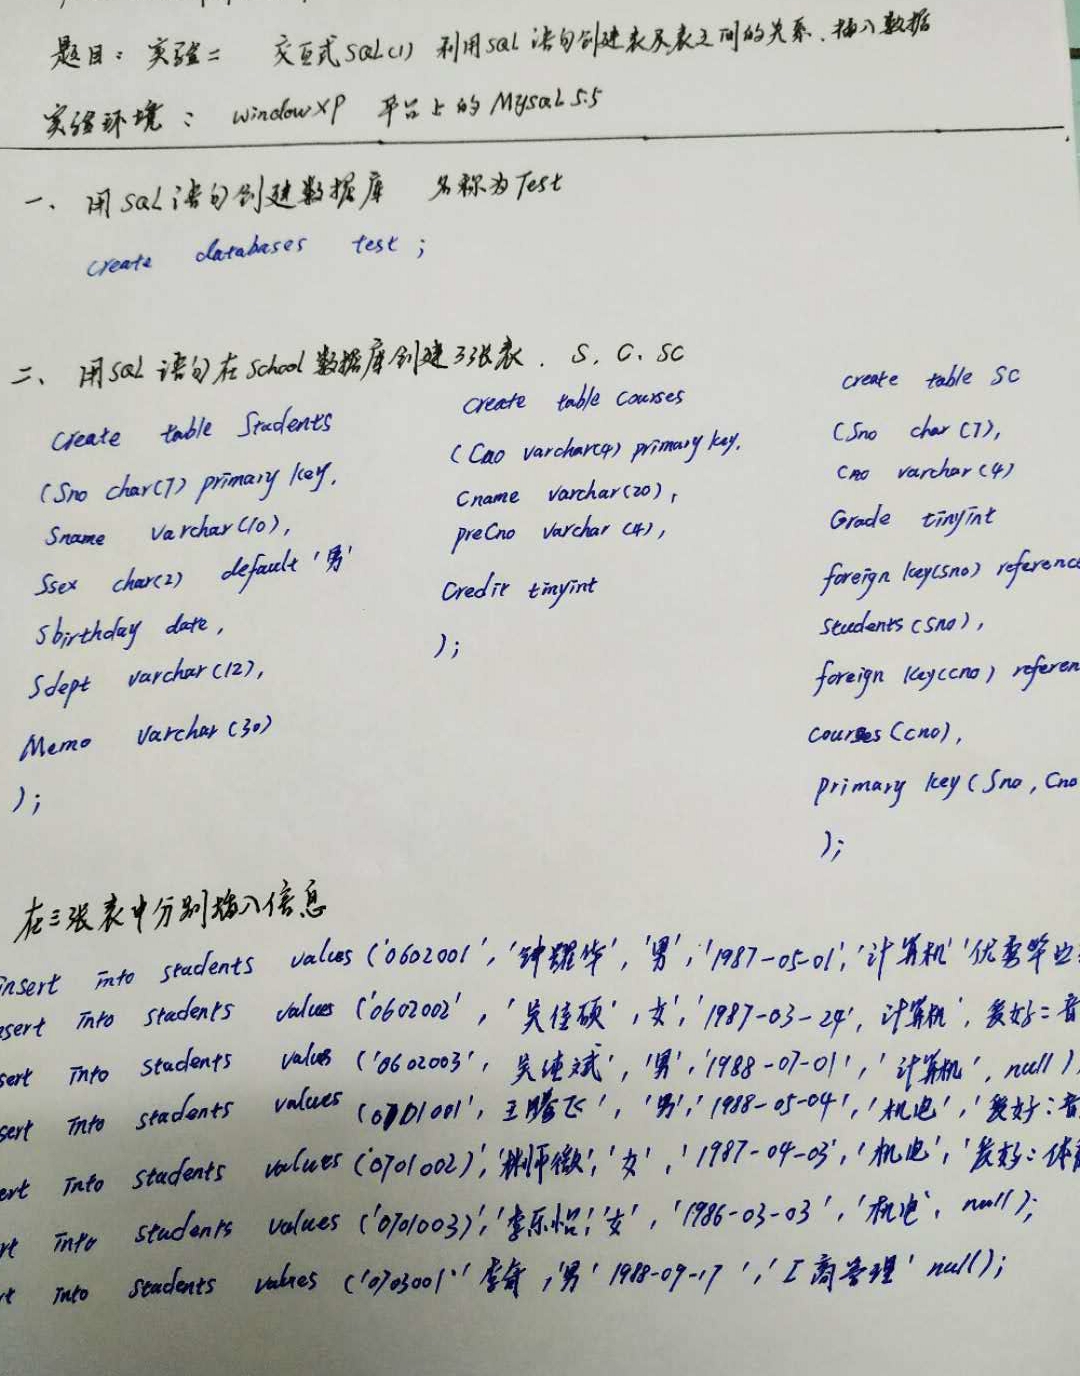 题目：实验二 交互式SQL(1) 利用SQL语句创建表及表之间的关系、插入数据
实验环境： windowXP 平台上的MySQL5.5
一、用SQL语句创建数据库 名称为Test
create databases test;
二、用SQL语句在School数据库创建3张表. S, C, SC
create table Students
(Sno char(7) primary key,
Sname varchar(10),
Ssex char(2) default '男'
Sbirthday date,
Sdept varchar(12),
Memo varchar(30)
);
create table courses
(Cno varchar(4) primary key,
Cname varchar(20),
preCno varchar(4),
Credit tinyint
);
create table SC
(Sno char(7),
Cno varchar(4)
Grade tinyint
foreign key(sno) reference
Students(sno),
foreign key(cno) referen
courses(cno),
primary key(Sno, Cno
);
在三张表中分别插入信息
insert into students values('0602001','钟耀华','男','1987-05-01','计算机' '优秀毕业
sert into students values('0602002','吴佳硕',女','1987-03-24',计算机',爱好:音
sert into students values('0602003',吴纯斌','男','1988-07-01','计算机',null)
sert into students values(0701001',王腾飞','男','1988-05-04','机电','爱好:音
ert into students values('0701002)','林师微','女','1987-04-03','机电','爱好:体育
rt into students values('0701003)','李乐怡','女','1986-03-03','机电',null);
rt into students values('0703001''李奇,'男' 1988-09-17','工商管理' null);